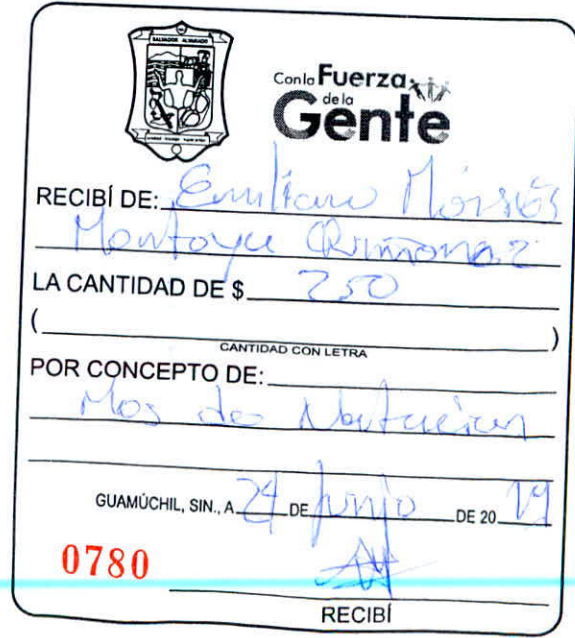 SALVADOR ALVARADO
Con la Fuerza
de la
Gente
RECIBÍ DE: Emiliano Moisés
Montoya Quiñonez
LA CANTIDAD DE $ 250
( )
CANTIDAD CON LETRA
POR CONCEPTO DE:
Mes de Natacion
GUAMÚCHIL, SIN., A 24 DE Junio DE 20 19
0780
RECIBÍ